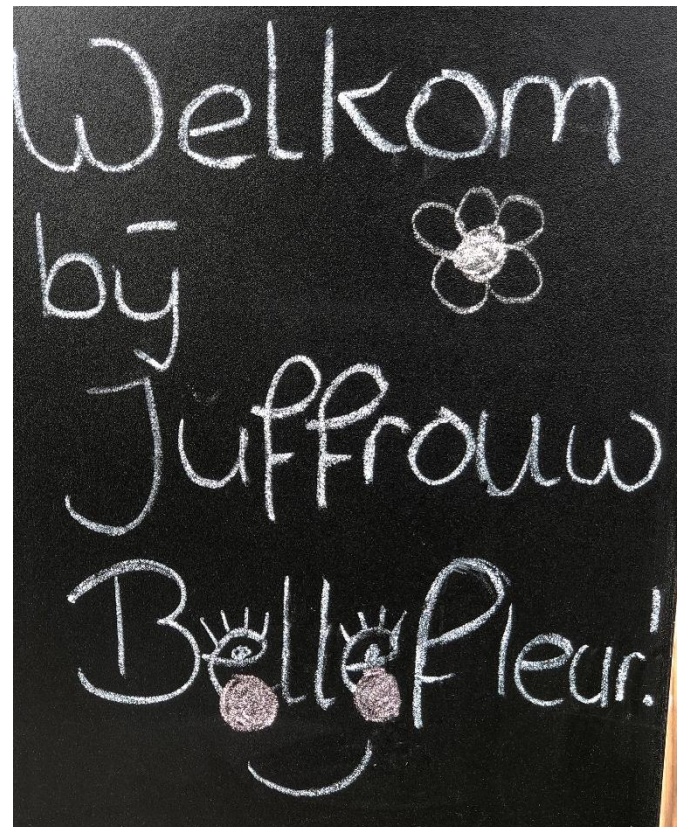 Welkom
bij
Juffrouw
Bellefleur!